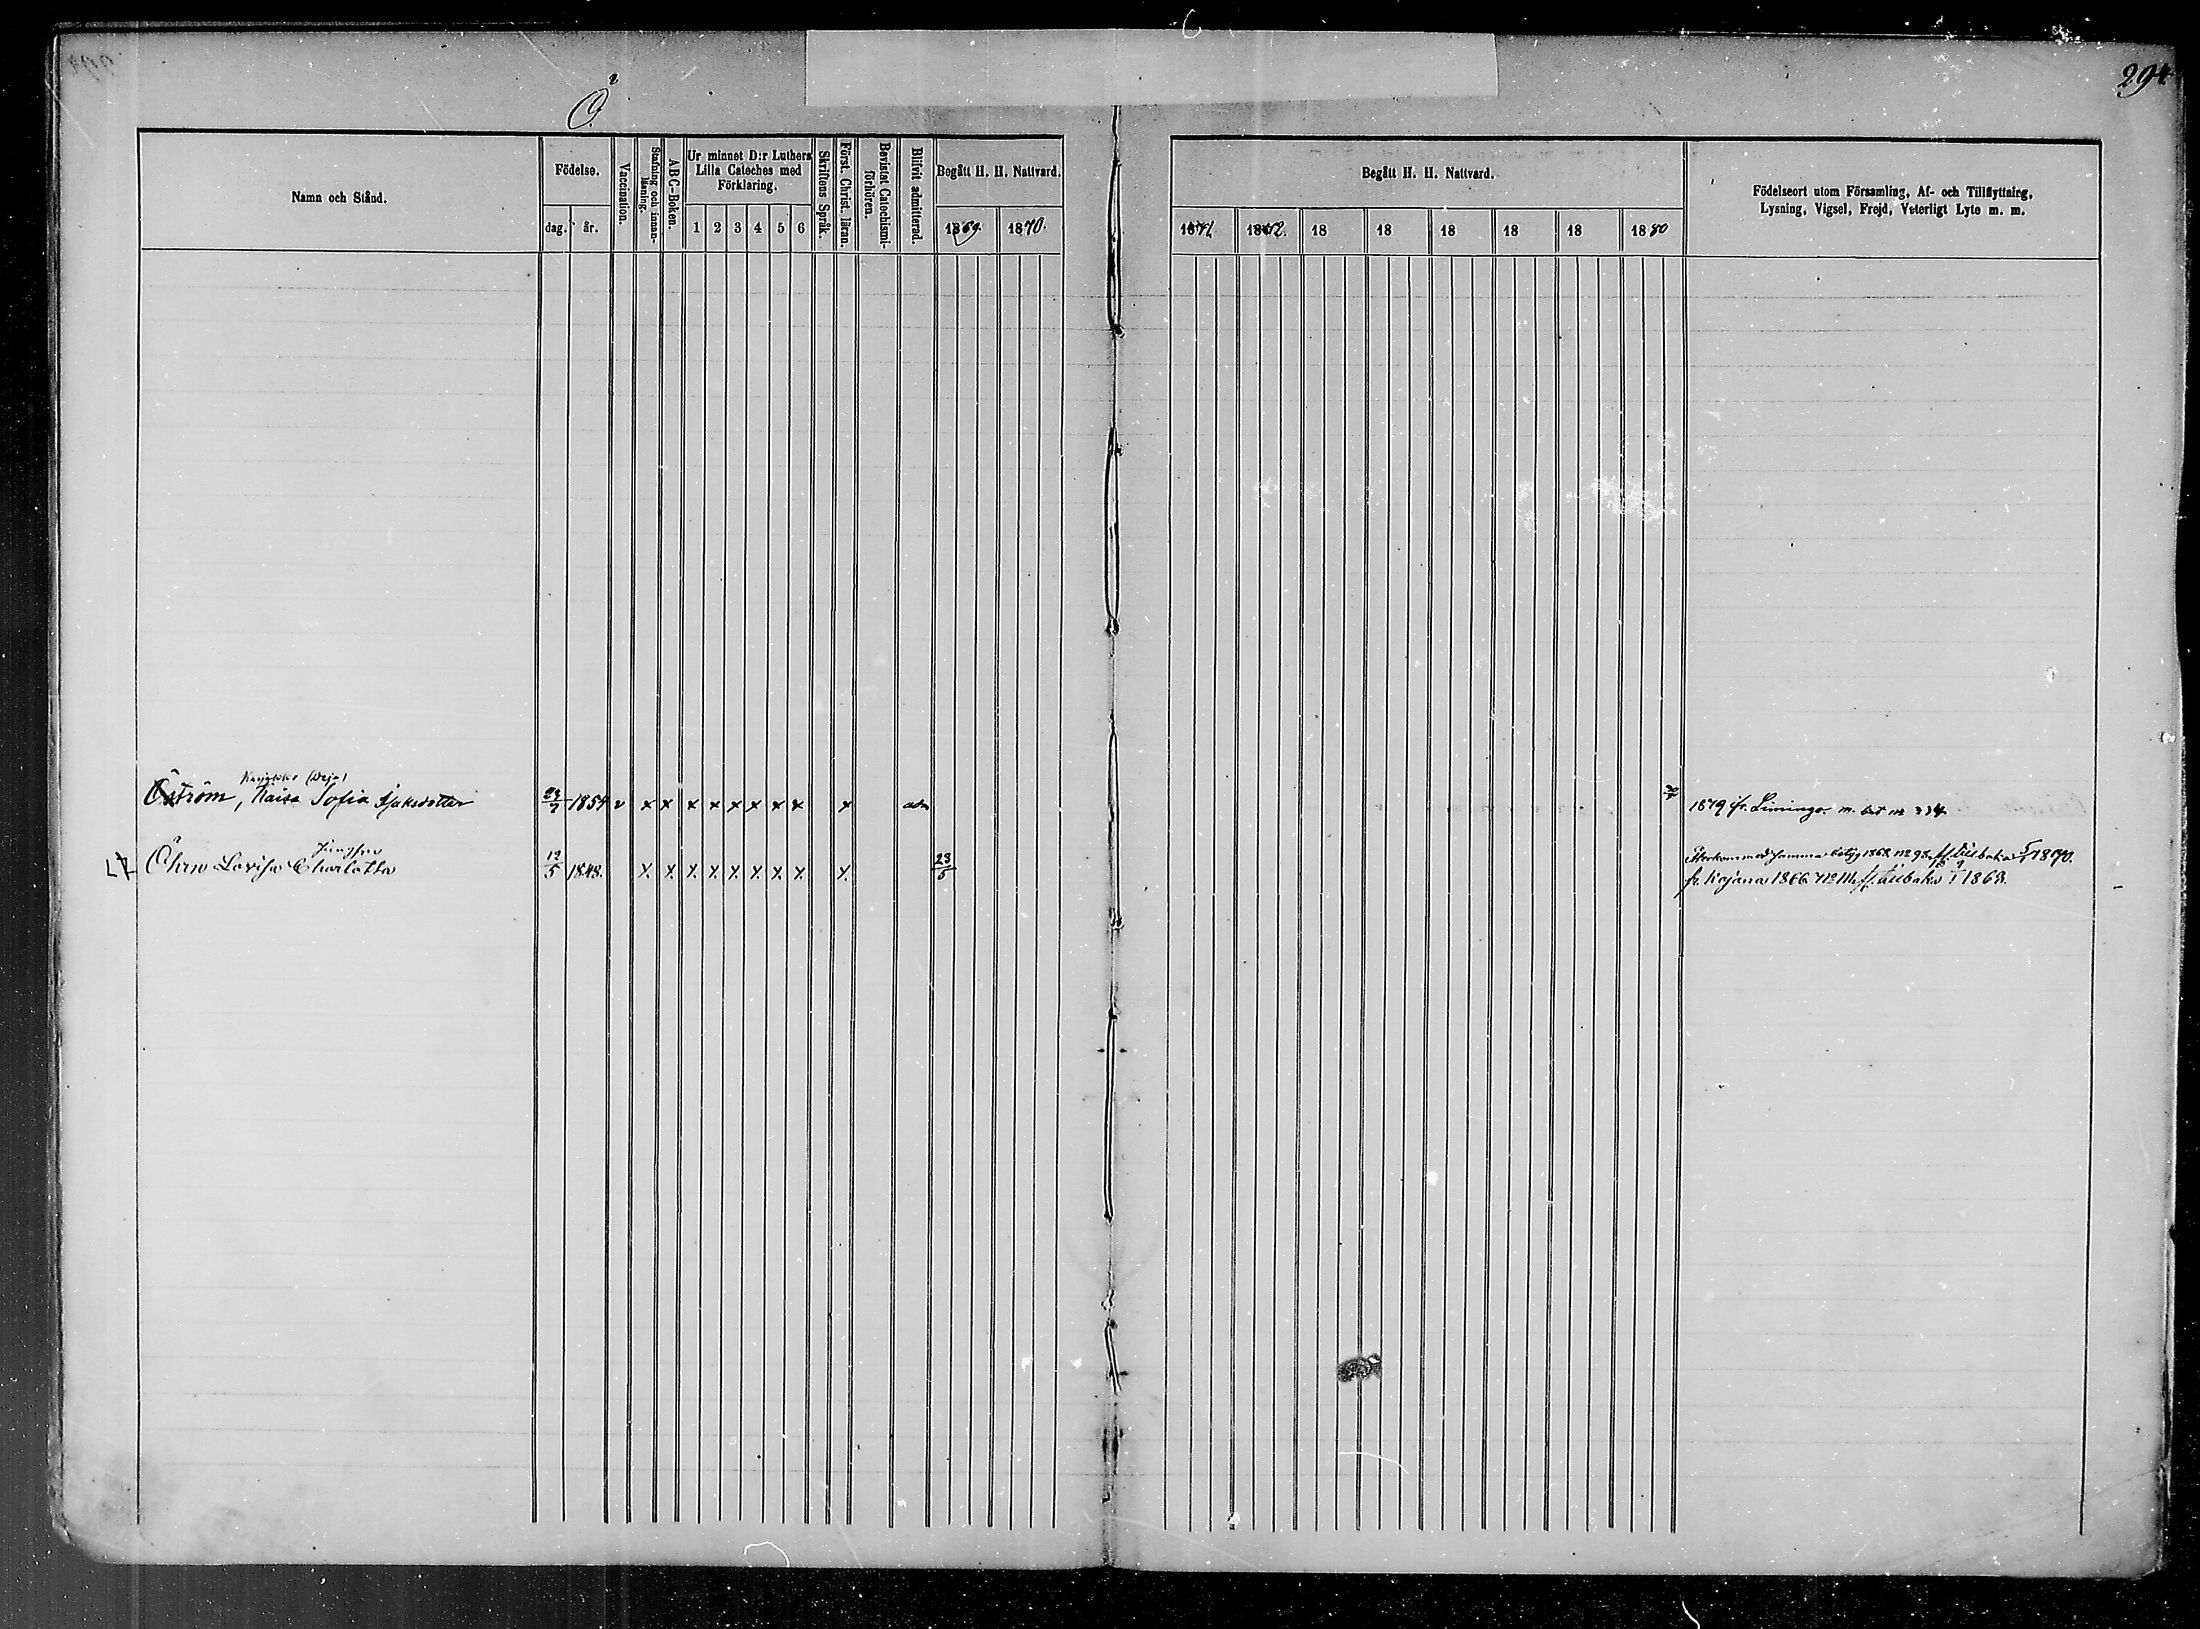 294
Ö.
Namn och Stånd.
Födelse.
dag.
år.
Vaccination.
Stafning och innan-
läsning.
ABC-Boken.
Ur minnet D:r Luthers
Lilla Cateches med
Förklaring.
1 2 3 4 5 6
Skriftens Språk.
Först. Christ. läran.
Bevistat Catechismi-
förhören.
Blifvit admitterad.
Begått H. H. Nattvard.
1869. 1870.
Begått H. H. Nattvard.
1871. 1872. 18 18 18 18 18 1880
Födelseort utom Församling, Af- och Tillflyttning,
Lysning, Vigsel, Frejd, Veterligt Lyte m. m.
Öström, Kaisa Sofia 1854 v x x x x x x x x x 1879 fr. Limingo. m. bet nº 234
Jungfru
Öhrn Lovisa Charlotta 12/5 1848. x x x x x x x x x 23/5 Återkom med samma betyg 1868 nº 98. tillbaka 1870.
fr. Kajana 1866 tillbaka 1868.